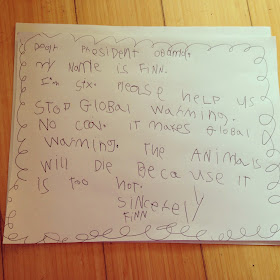 Dear President Obama.
my Name is FINN.
I'm six. Please help us
STOP GLobal warming.
No cars. it makes GLobal
warming. The ANimals
will Die Because it
is too hot.
SINcerely
FINN